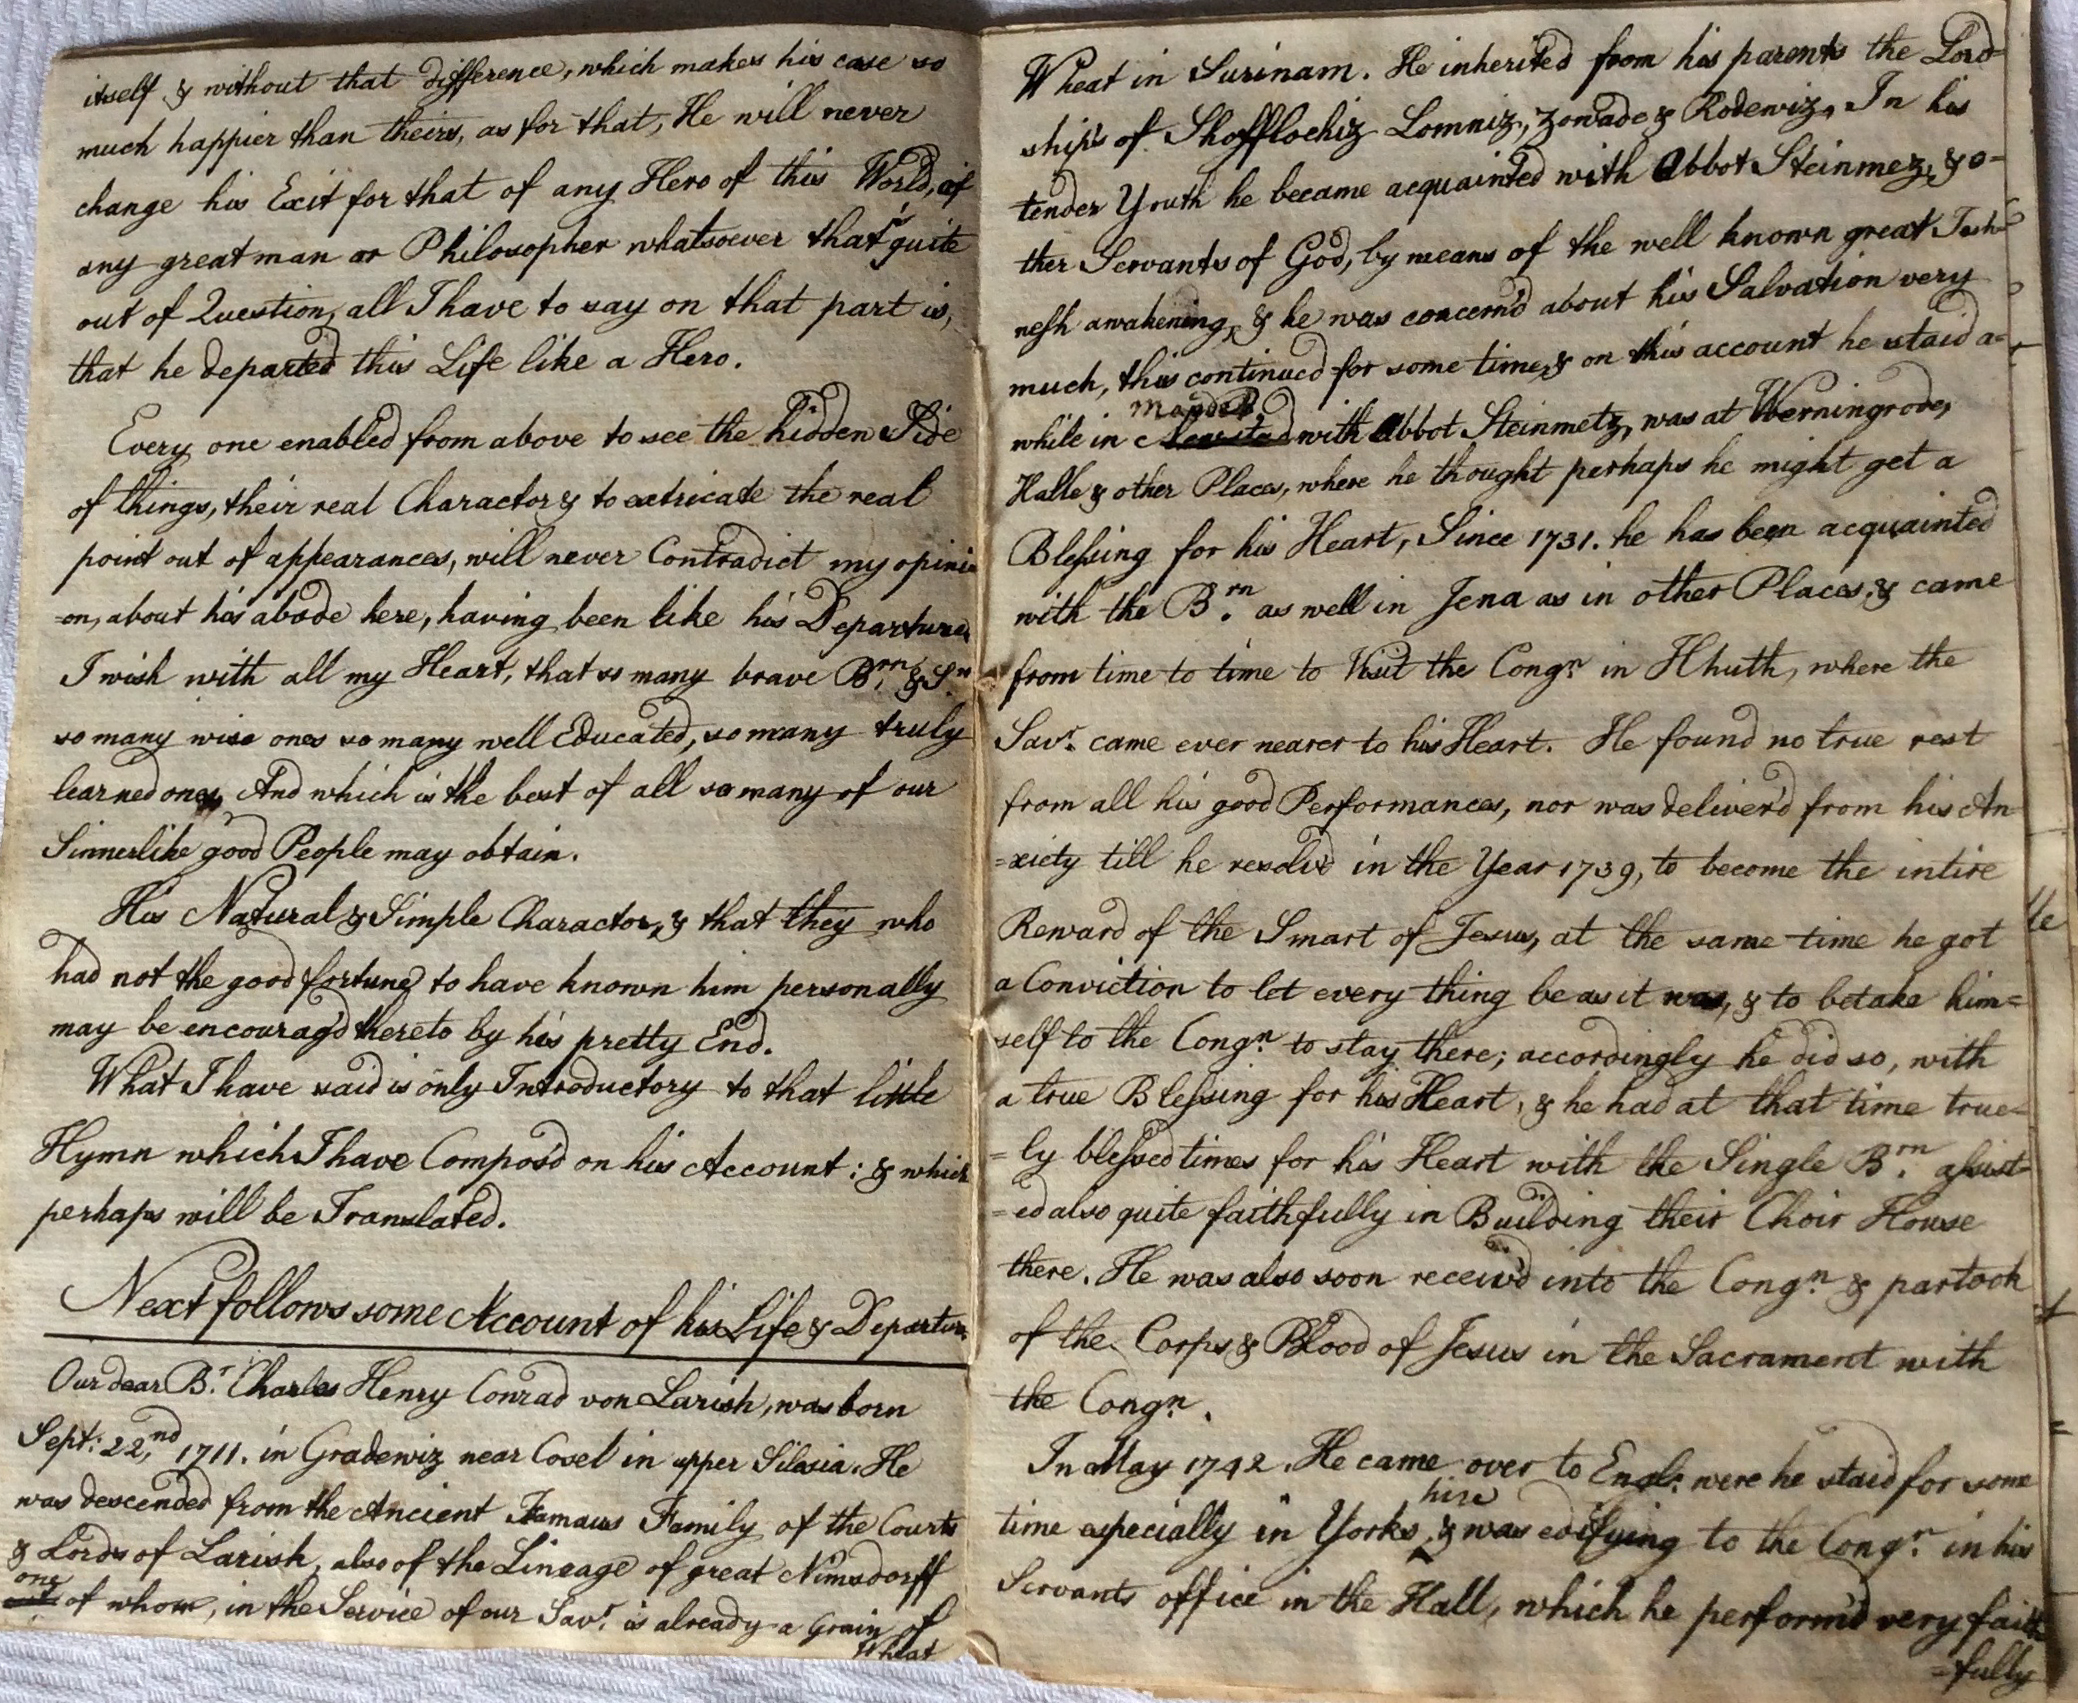 itself & without that difference, which makes his case so
much happier than theirs, as for that, He will never
change his Exit for that of any Hero of this World, of
any great man or Philosopher whatsoever that's quite
out of Question, all I have to say on that part is,
that he departed this Life like a Hero.
Every one enabled from above to see the hidden Side
of things, their real Charactor & to extricate the real
point out of appearances, will never Contradict my opini
=on, about his abode here, having been like his Departure
I wish with all my Heart, that so many brave Brn. & Srs
so many wise ones so many well Educated, so many truly
learned ones, And which is the best of all so many of our
Sinnerlike good People may obtain.
His Natural & Simple Charactor, & that they who
had not the good fortune to have known him personally
may be encourag'd thereto by his pretty End.
What I have said is only Introductory to that little
Hymn which I have Compos'd on his Account: & which
perhaps will be Translated.
Next follows some Account of his Life & Departure
Our dear Br. Charles Henry Conrad von Larish, was born
Sept: 22nd, 1711. in Gradewiz near Cosel in upper Silesia. He
was descended from the Ancient Famous Family of the Courts
& Lords of Larish, also of the Lineage of great Nimsdorff
one of whom, in the Service of our Savr. is already a Grain of
Wheat
Wheat in Surinam. He inherited from his parents the Lord=
ships of Shofflochiz Lomniz, Zowade & Rodewiz. In his
tender Youth he became acquainted with Abbot Steinmez, & o=
ther Servants of God, by means of the well known great Tesh=
nesh awakening, & he was concern'd about his Salvation very
much, this continued for some time, & on this account he staid a=
while in Magdeb. with Abbot Steinmetz, was at Werningrode,
Halle & other Places, where he thought perhaps he might get a
Blessing for his Heart, Since 1731. he has been acquainted
with the Brn. as well in Jena as in other Places, & came
from time to time to Visit the Congn. in Hhuth, where the
Savr. came ever nearer to his Heart. He found no true rest
from all his good Performances, nor was deliver'd from his An
=xiety till he resolv'd in the Year 1739, to become the intire
Reward of the Smart of Jesus, at the same time he got
a Conviction to let every thing be as it was, & to betake him=
self to the Congn. to stay there; accordingly he did so, with
a true Blessing for his Heart, & he had at that time true=
=ly blessed times for his Heart with the Single Brn. assist=
=ed also quite faithfully in Building their Choir House
there. He was also soon receiv'd into the Congn. & partook
of the Corps & Blood of Jesus in the Sacrament with
the Congn.
In May 1742. He came over to Engl: were he staid for some
time especially in Yorkshire & was edifying to the Congn. in his
Servants office in the Hall, which he perform'd very faith
=fully